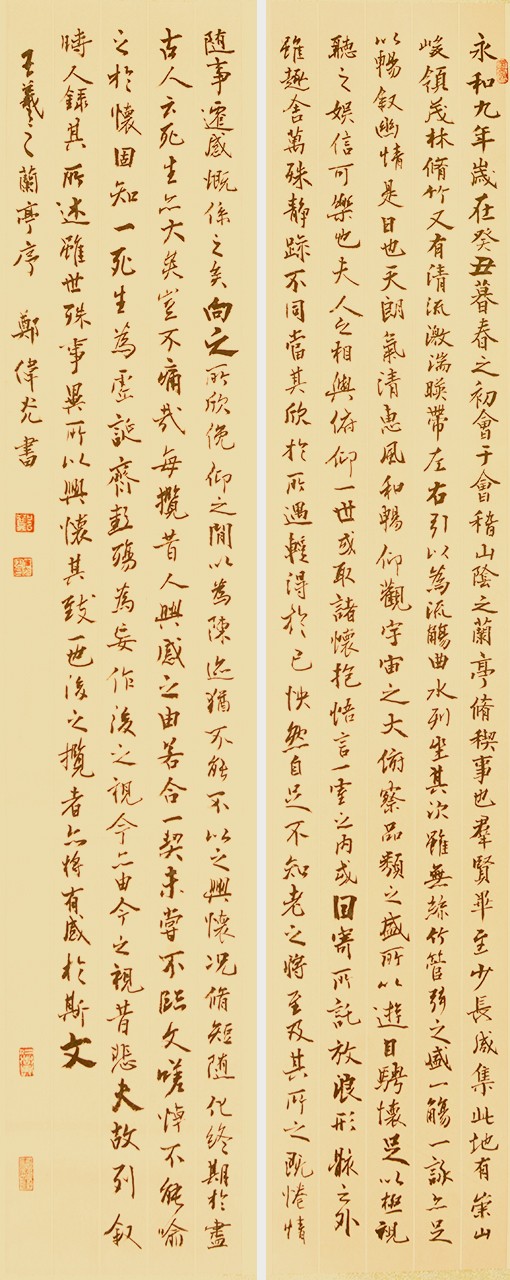 永和九年歲在癸丑暮春之初會于會稽山陰之蘭亭脩稧事也羣賢畢至少長咸集此地有崇山
峻領茂林脩竹又有清流激湍暎帶左右引以為流觴曲水列坐其次雖無絲竹管弦之盛一觴一詠亦足
以暢叙幽情是日也天朗氣清惠風和暢仰觀宇宙之大俯察品類之盛所以遊目騁懷足以極視
聽之娛信可樂也夫人之相與俯仰一世或取諸懷抱悟言一室之內或因寄所託放浪形骸之外
雖趣舍萬殊靜躁不同當其欣於所遇輕得於己怏然自足不知老之將至及其所之既惓情
随事遷感慨係之矣向之所欣俛仰之間以為陳迹猶不能不以之興懷況脩短随化終期於盡
古人云死生亦大矣豈不痛哉每攬昔人興感之由若合一契未嘗不臨文嗟悼不能喻
之於懷固知一死生為虛誕齊彭殤為妄作後之視今亦由今之視昔悲夫故列叙
時人錄其所述雖世殊事異所以興懷其致一也後之攬者亦將有感於斯文
王羲之蘭亭序 鄭偉光書